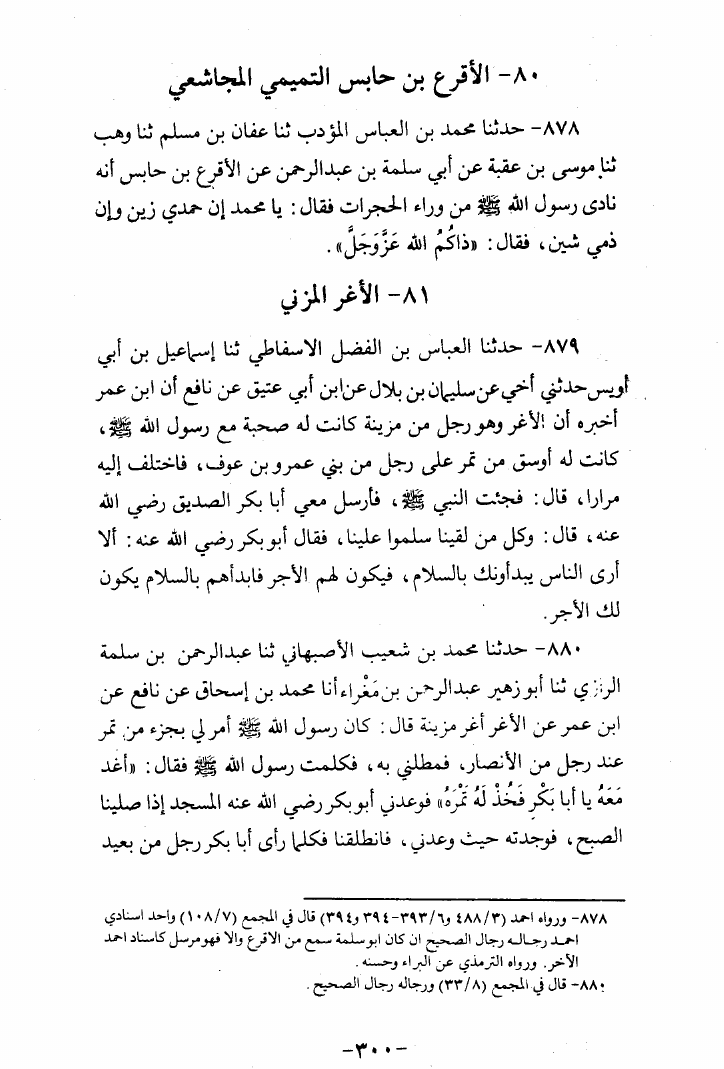 ٨٠- الأقرع بن حابس التميمي المجاشعي
٨٧٨- حدثنا محمد بن العباس المؤدب ثنا عفان بن مسلم ثنا وهب
ثنا موسى بن عقبة عن أبي سلمة بن عبدالرحمن عن الأقرع بن حابس أنه
نادى رسول الله ﷺ من وراء الحجرات فقال: يا محمد إن حمدي زين وإن
ذمي شين، فقال: «ذاكُمُ الله عَزَّوَجَلَّ».
٨١- الأغر المزني
٨٧٩- حدثنا العباس بن الفضل الاسفاطي ثنا إسماعيل بن أبي
أويس حدثني أخي عن سليمان بن بلال عن ابن أبي عتيق عن نافع أن ابن عمر
أخبره أن الأغر وهو رجل من مزينة كانت له صحبة مع رسول الله ﷺ،
كانت له أوسق من تمر على رجل من بني عمرو بن عوف، فاختلف إليه
مرارا، قال: فجئت النبي ﷺ، فأرسل معي أبا بكر الصديق رضي الله
عنه، قال: وكل من لقينا سلموا علينا، فقال أبو بكر رضي الله عنه: ألا
أرى الناس يبدأونك بالسلام، فيكون لهم الأجر فابدأهم بالسلام يكون
لك الأجر.
٨٨٠- حدثنا محمد بن شعيب الأصبهاني ثنا عبدالرحمن بن سلمة
الرازي ثنا أبو زهير عبدالرحمن بن مَغْراء أنا محمد بن إسحاق عن نافع عن
ابن عمر عن الأغر أغر مزينة قال: كان رسول الله ﷺ أمر لي بجزء من تمر
عند رجل من الأنصار، فمطلني به، فكلمت رسول الله ﷺ فقال: «أغد
مَعَهُ يا أبا بَكْرٍ فَخُذْ لَهُ تَمْرَهُ» فوعدني أبو بكر رضي الله عنه المسجد إذا صلينا
الصبح، فوجدته حيث وعدني، فانطلقنا فكلما رأى أبا بكر رجل من بعيد
٨٧٨- ورواه احمد (٤٨٨/٣ و٣٩٣/٦-٣٩٤ و٣٩٤) قال في المجمع (١٠٨/٧) واحد اسنادي
احمد رجاله رجال الصحيح ان كان ابو سلمة سمع من الاقرع والا فهو مرسل كاسناد احمد
الآخر. ورواه الترمذي عن البراء وحسنه.
٨٨٠- قال في المجمع (٣٣/٨) ورجاله رجال الصحيح.
-٣٠٠-